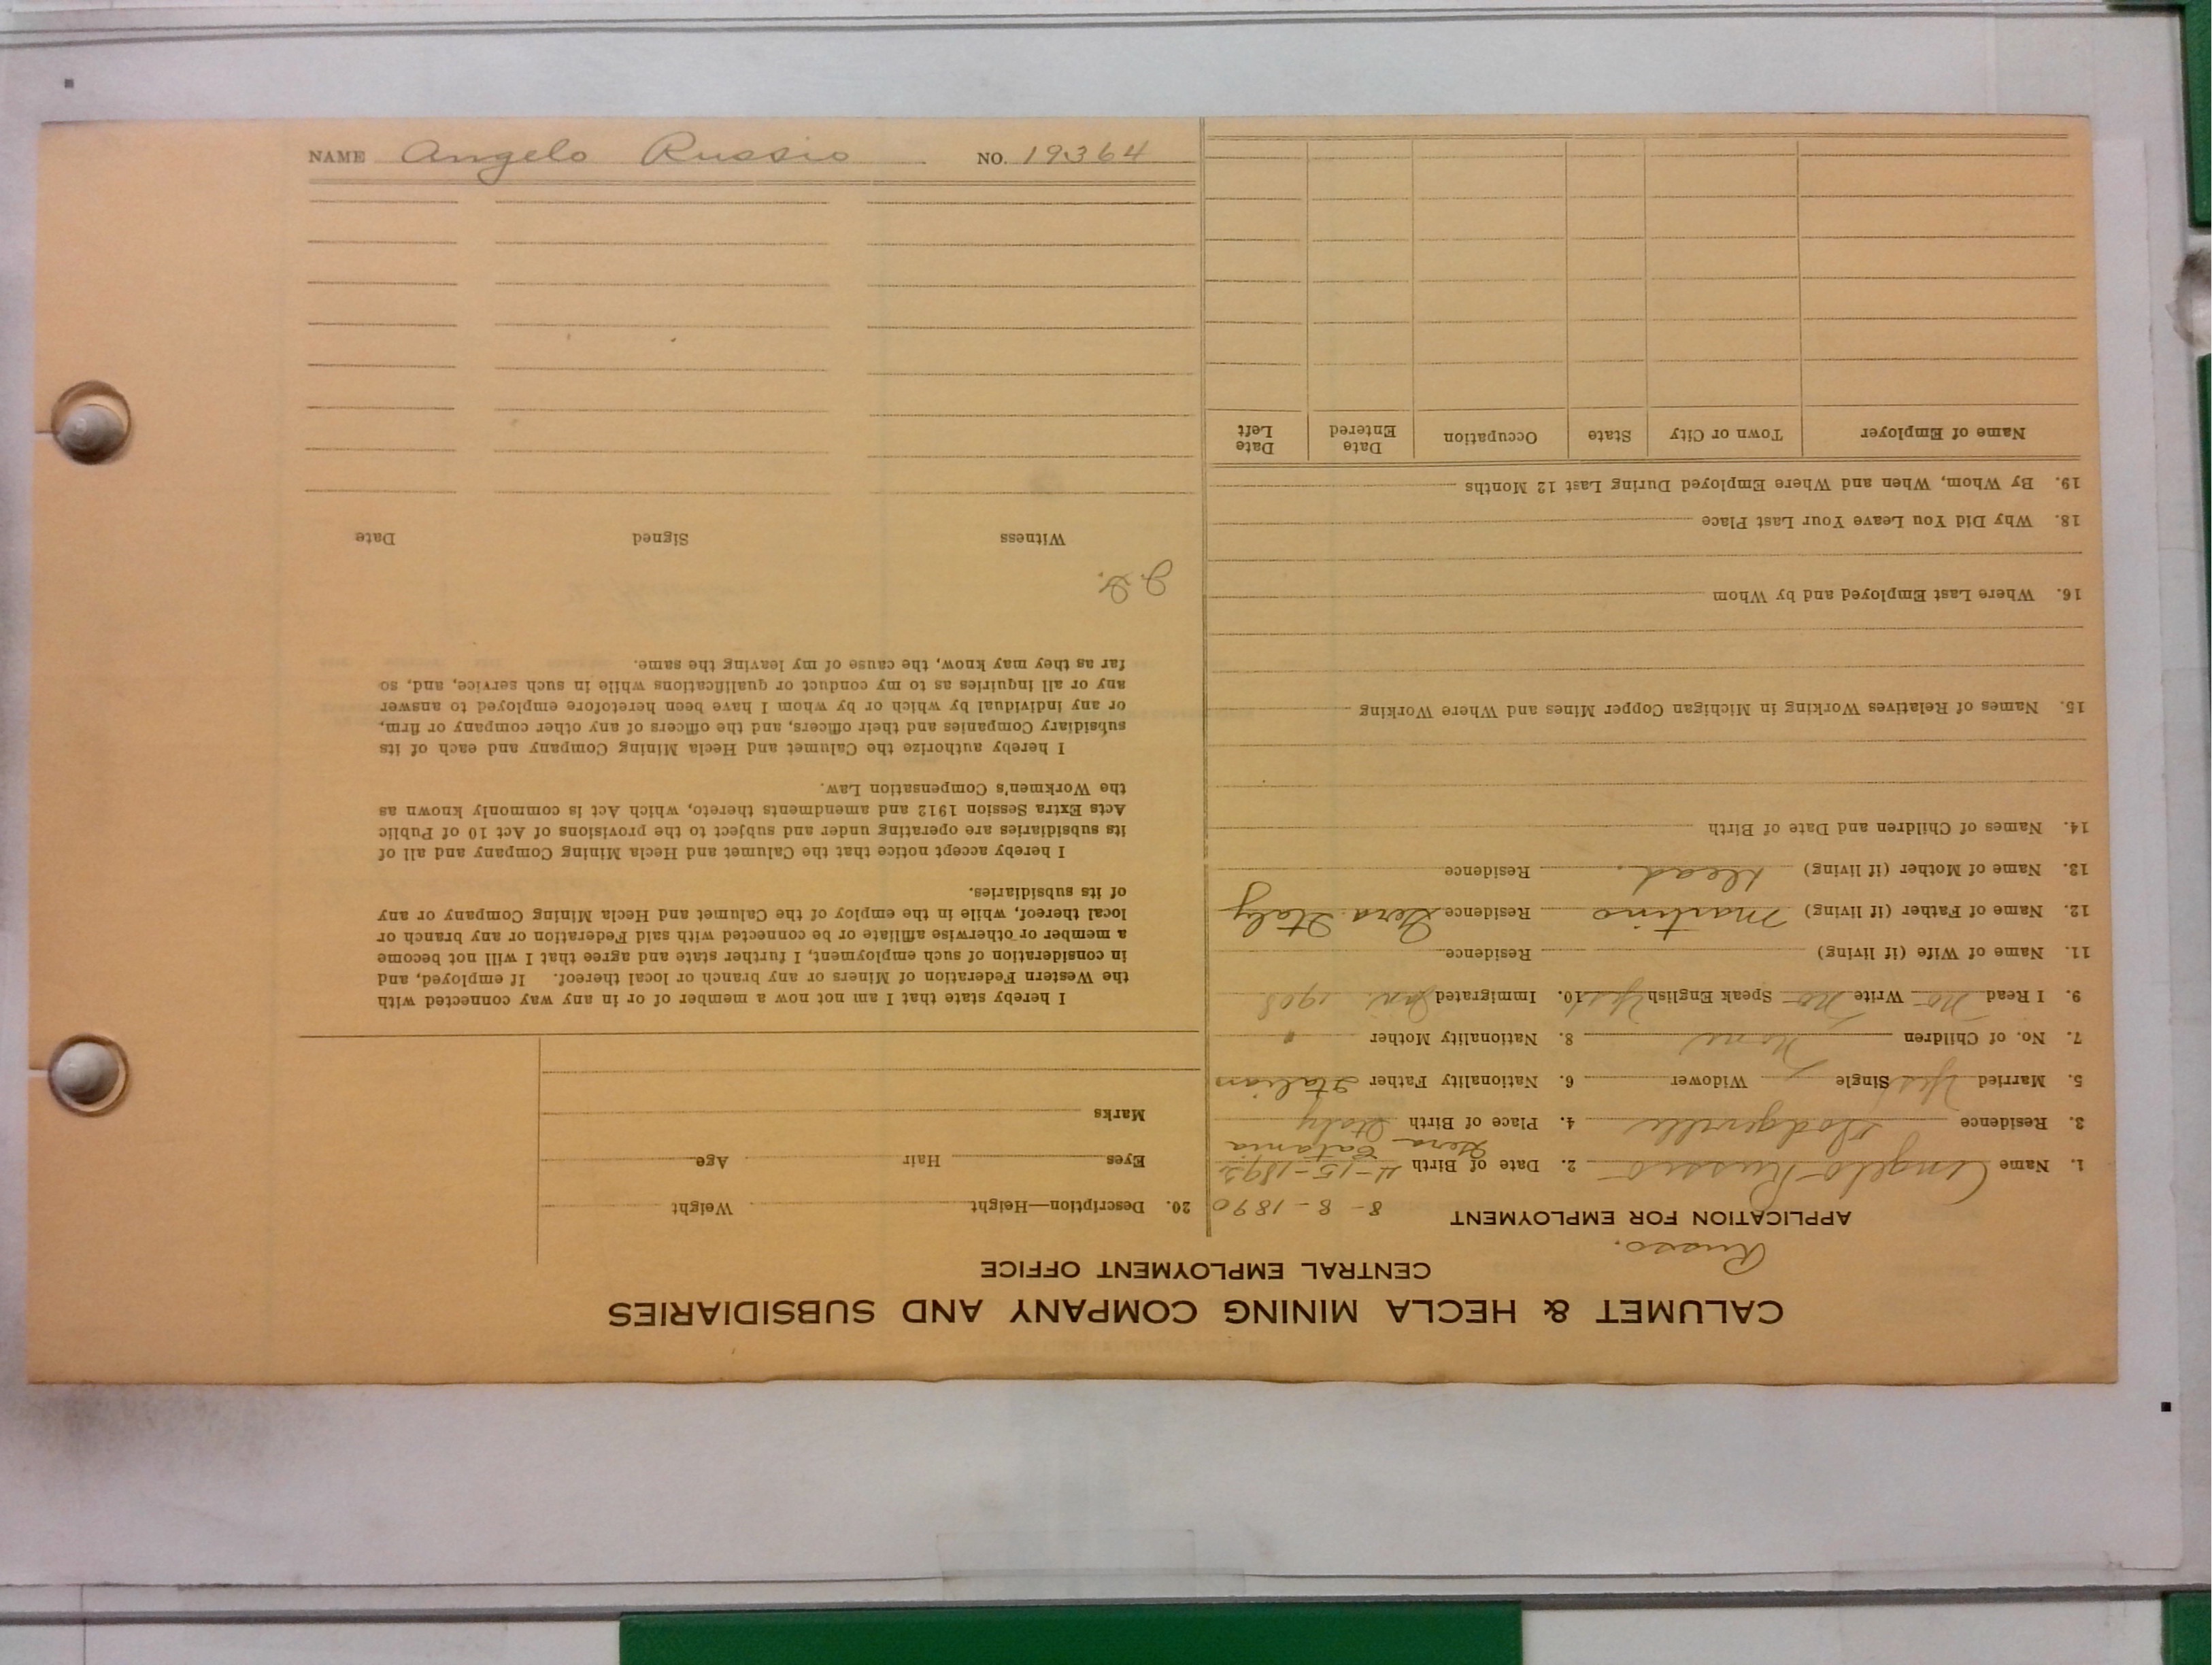 CALUMET & HECLA MINING COMPANY AND SUBSIDIARIES
CENTRAL EMPLOYMENT OFFICE
Russo.
APPLICATION FOR EMPLOYMENT
8-8-1890
1. Name Angelo Russio 2. Date of Birth 4-15-1892
Catania
3. Residence Dodgeville 4. Place of Birth Italy
5. Married Yes Single Widower 6. Nationality Father Italian
7. No. of Children None 8. Nationality Mother "
9. I Read No Write No Speak English Yes 10. Immigrated Jan. 1908
11. Name of Wife (if living) Residence
12. Name of Father (if living) Martino Residence Italy
13. Name of Mother (if living) Dead. Residence
14. Names of Children and Date of Birth
15. Names of Relatives Working in Michigan Copper Mines and Where Working
16. Where Last Employed and by Whom
18. Why Did You Leave Your Last Place
19. By Whom, When and Where Employed During Last 12 Months
Name of Employer Town or City State Occupation Date Entered Date Left
20. Description—Height Weight
Eyes Hair Age
Marks
I hereby state that I am not now a member of or in any way connected with
the Western Federation of Miners or any branch or local thereof. If employed, and
in consideration of such employment, I further state and agree that I will not become
a member or otherwise affiliate or be connected with said Federation or any branch or
local thereof, while in the employ of the Calumet and Hecla Mining Company or any
of its subsidiaries.
I hereby accept notice that the Calumet and Hecla Mining Company and all of
its subsidiaries are operating under and subject to the provisions of Act 10 of Public
Acts Extra Session 1912 and amendments thereto, which Act is commonly known as
the Workmen's Compensation Law.
I hereby authorize the Calumet and Hecla Mining Company and each of its
subsidiary Companies and their officers, and the officers of any other company or firm,
or any individual by which or by whom I have been heretofore employed to answer
any or all inquiries as to my conduct or qualifications while in such service, and, so
far as they may know, the cause of my leaving the same.
Witness Signed Date
NAME Angelo Russio NO. 19364